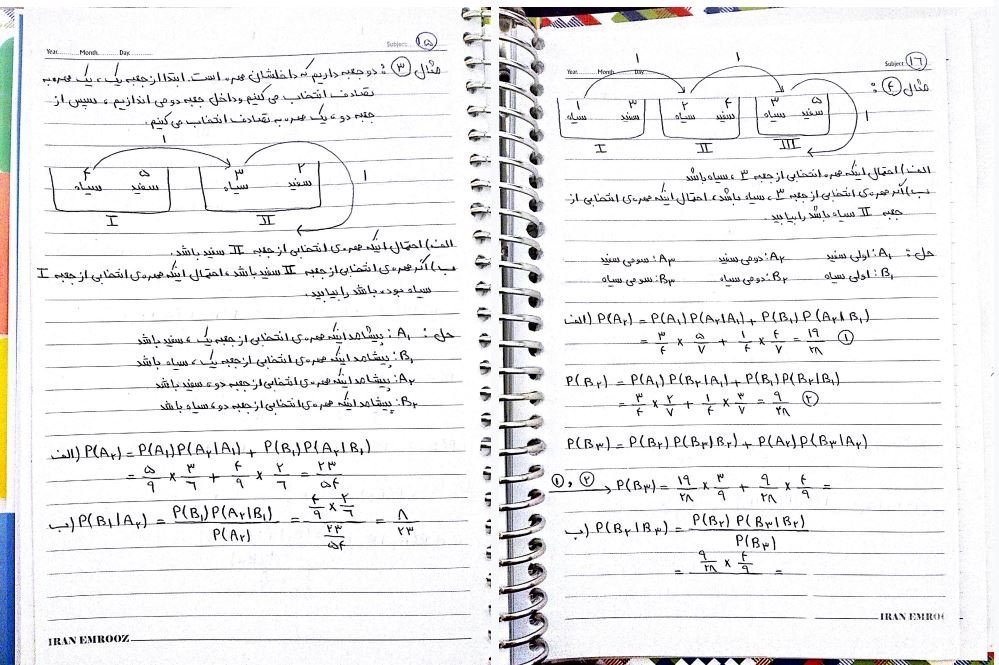 Year......... Month......... Day.........
Subject: ۱۵
مثال ۳: دو جعبه داریم که داخلشان مهره است. ابتدا از جعبه یک، یک مهره به
تصادف انتخاب می کنیم و داخل جعبه دو می اندازیم، سپس از
جعبه دو، یک مهره به تصادف انتخاب می کنیم.
۱
۴ سیاه ۵ سفید ۳ سیاه ۲ سفید ۱
I II
الف) احتمال اینکه مهره ی انتخابی از جعبه II سفید باشد.
ب) اگر مهره ی انتخابی از جعبه II سفید باشد، احتمال اینکه مهره ی انتخابی از جعبه I
سیاه بوده باشد را بیابید.
حل: A₁: پیشامد اینکه مهره ی انتخابی از جعبه یک، سفید باشد
B₁: پیشامد اینکه مهره ی انتخابی از جعبه یک، سیاه باشد
A₂: پیشامد اینکه مهره ی انتخابی از جعبه دو، سفید باشد
B₂: پیشامد اینکه مهره ی انتخابی از جعبه دو، سیاه باشد
الف) P(A₂) = P(A₁)P(A₂|A₁) + P(B₁)P(A₂|B₁)
= ۵/۹ × ۳/۶ + ۴/۹ × ۲/۶ = ۲۳/۵۴
ب) P(B₁|A₂) = P(B₁)P(A₂|B₁) / P(A₂) = (۴/۹ × ۲/۶) / (۲۳/۵۴) = ۸/۲۳
IRAN EMROOZ
Year......... Month......... Day.........
Subject: ۱۶
مثال ۴:
۱ ۱
۱ سیاه ۳ سفید ۲ سیاه ۴ سفید ۳ سیاه ۵ سفید ۱
I II III
الف) احتمال اینکه مهره انتخابی از جعبه ۳، سیاه باشد
ب) اگر مهره ی انتخابی از جعبه ۳، سیاه باشد، احتمال اینکه مهره ی انتخابی از
جعبه II سیاه باشد را بیابید.
حل: A₁: اولی سفید A₂: دومی سفید A₃: سومی سفید
B₁: اولی سیاه B₂: دومی سیاه B₃: سومی سیاه
الف) P(A₂) = P(A₁)P(A₂|A₁) + P(B₁)P(A₂|B₁)
= ۳/۴ × ۵/۷ + ۱/۴ × ۴/۷ = ۱۹/۲۸ ①
P(B₂) = P(A₁)P(B₂|A₁) + P(B₁)P(B₂|B₁)
= ۳/۴ × ۲/۷ + ۱/۴ × ۳/۷ = ۹/۲۸ ②
P(B₃) = P(B₂)P(B₃|B₂) + P(A₂)P(B₃|A₂)
①, ② → P(B₃) = ۱۹/۲۸ × ۳/۹ + ۹/۲۸ × ۴/۹ =
ب) P(B₂|B₃) = P(B₂)P(B₃|B₂) / P(B₃)
= ۹/۲۸ × ۴/۹ / =
IRAN EMRO